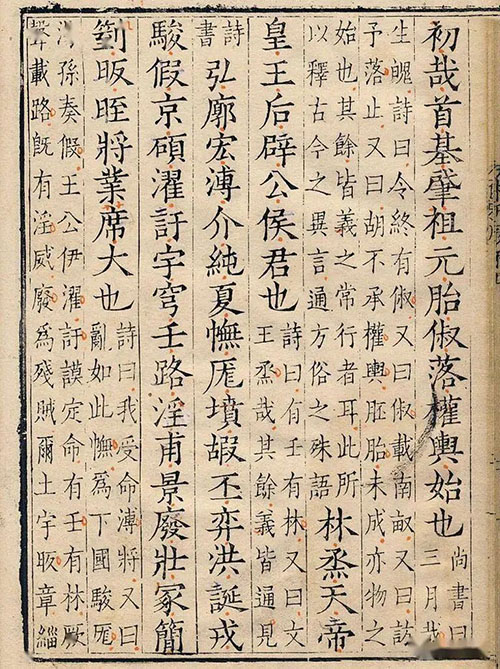 初哉首基肇祖元胎俶落權輿始也尚書曰
三月哉
生魄詩曰令終有俶又曰俶載南畝又曰訪
予落止又曰胡不承權輿胚胎未成亦物之
始也其餘皆義之常行者耳此所
以釋古今之異言通方俗之殊語
林烝天帝
皇王后辟公侯君也詩曰有壬有林又曰文
王烝哉其餘義皆通見
詩
書
弘廓宏溥介純夏幠厖墳嘏丕弈洪誕戎
駿假京碩濯訏宇穹壬路淫甫景廢壯冢簡
箌昄晊將業席大也詩曰我受命溥將又曰
亂如此幠為下國駿厖
湯孫奏假王公伊濯訏謨定命有壬有林厥
聲載路既有淫威廢為殘賊爾土宇昄章緇